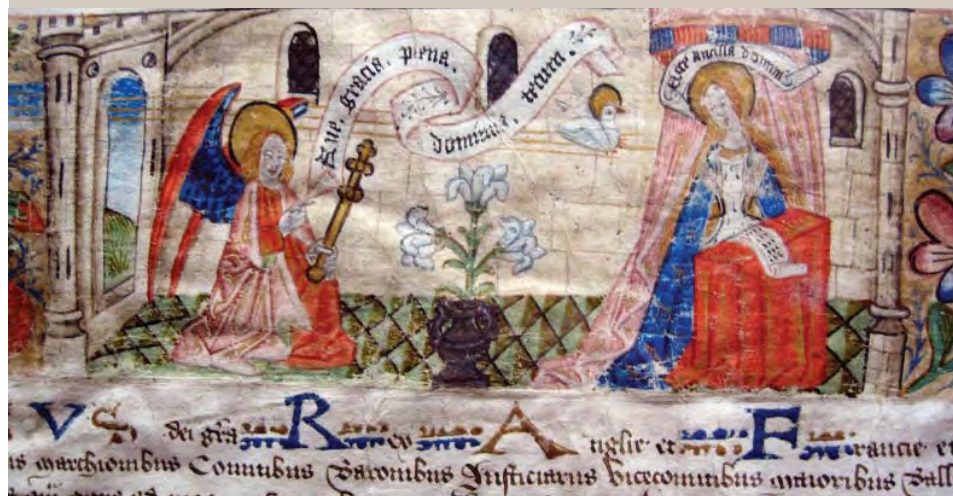 Aue. gracia. plena.
dominus. tecum.
Ecce ancilla domini
VS dei gra Rex Anglie et Francie et
is marchionibus Comitibus Baronibus Justiciariis Vicecomitibus maioribus Ball